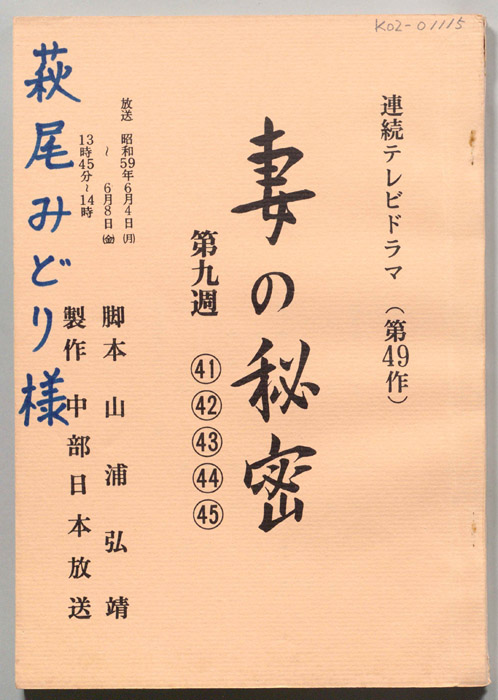 K02-01115
連続テレビドラマ（第49作）
妻の秘密
第九週 ㊶㊷㊸㊹㊺
放送 昭和59年6月4日(月)
～6月8日(金)
13時45分～14時
脚本 山浦弘靖
製作 中部日本放送
萩尾みどり様